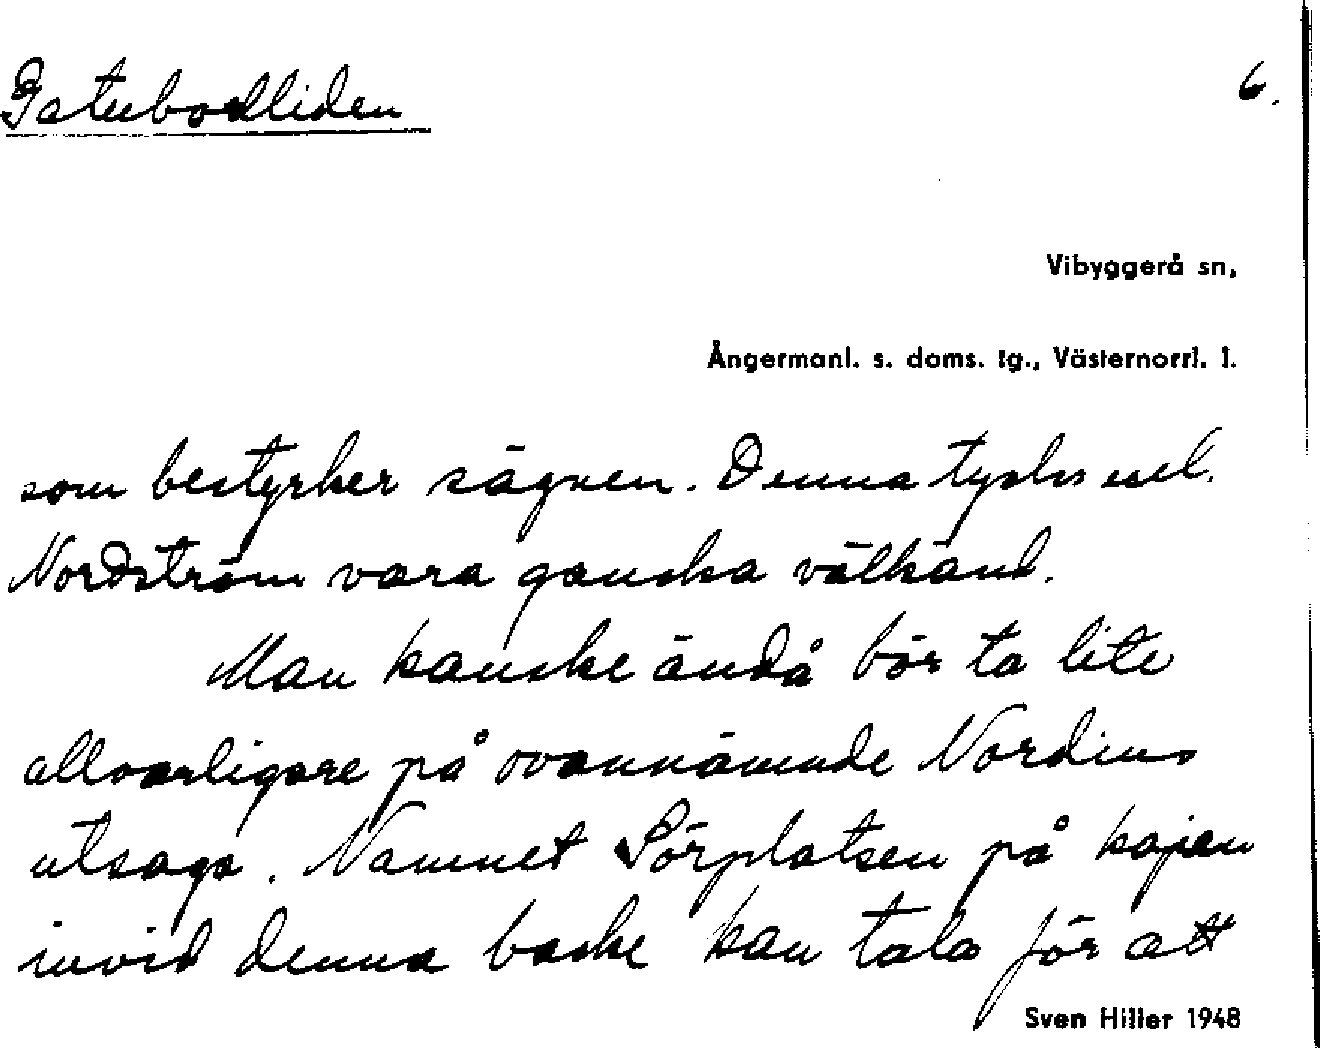 Gatubodliden 6.
Vibyggerå sn,
Ångermanl. s. doms. tg., Västernorrl. l.
som bestyrker sägnen. Denna tycks enl.
Nordström vara ganska välkänd.
Man kanske ändå bör ta lite
allvarligare på ovannämnde Nordins
utsaga. Namnet Sörplatsen på kajen
invid denna backe kan tala för att
Sven Hiller 1948